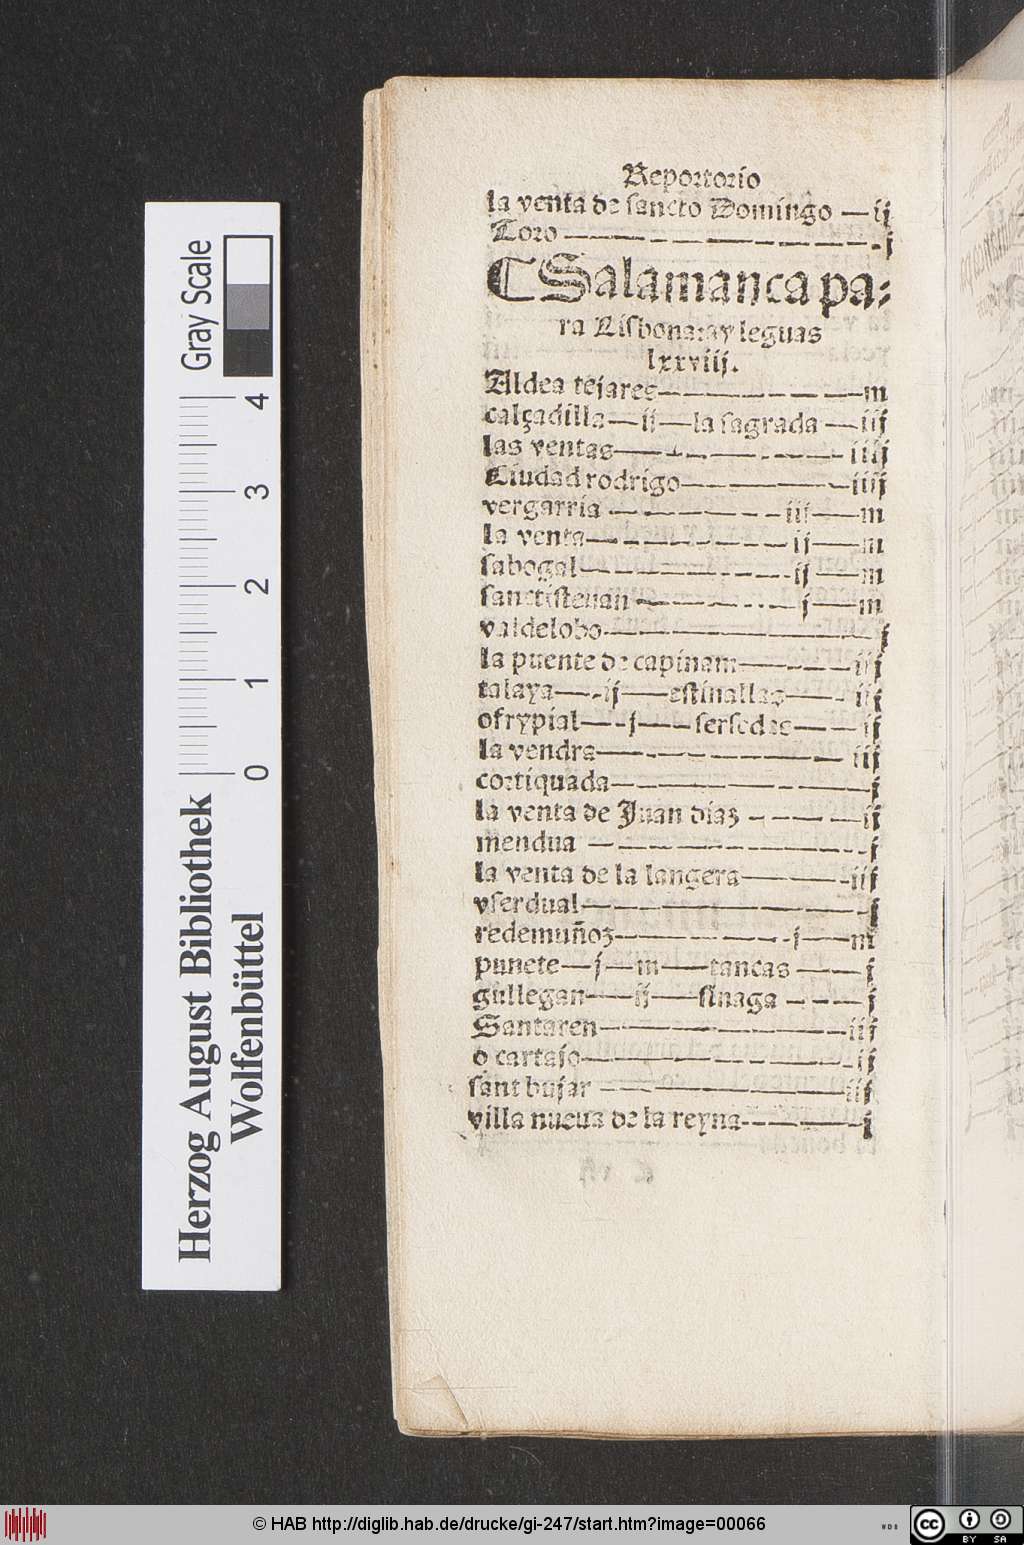 Reportorio
la venta de sancto Domingo — ij
Toro — j
Salamanca pa-
ra Lisbona: ay leguas
lxxviij.
Aldea tejares — m
calçadilla — ij — la sagrada — iij
las ventas — iiij
Ciudad rodrigo — iiij
vergarria — iij — m
la venta — ij — m
sabogal — ij — m
sanctisteuan — j — m
valdelobo — j
la puente de capinam — iij
talaya — ij — estinallas — iij
ofrypial — j — sersedas — ij
la vendra — iij
cortiquada — j
la venta de Juan diaz — ij
mendua — j
la venta de la langera — iij
vserdual — j
redemuñoz — j — m
punete — j — m — tancas — j
gullegan — ij — sinaga — j
Santaren — iij
o cartajo — ij
sant bujar — iij
villa nueua de la reyna — j
Gray Scale
4
3
2
1
0
Herzog August Bibliothek
Wolfenbüttel
© HAB http://diglib.hab.de/drucke/gi-247/start.htm?image=00066
WDB
cc
BY SA